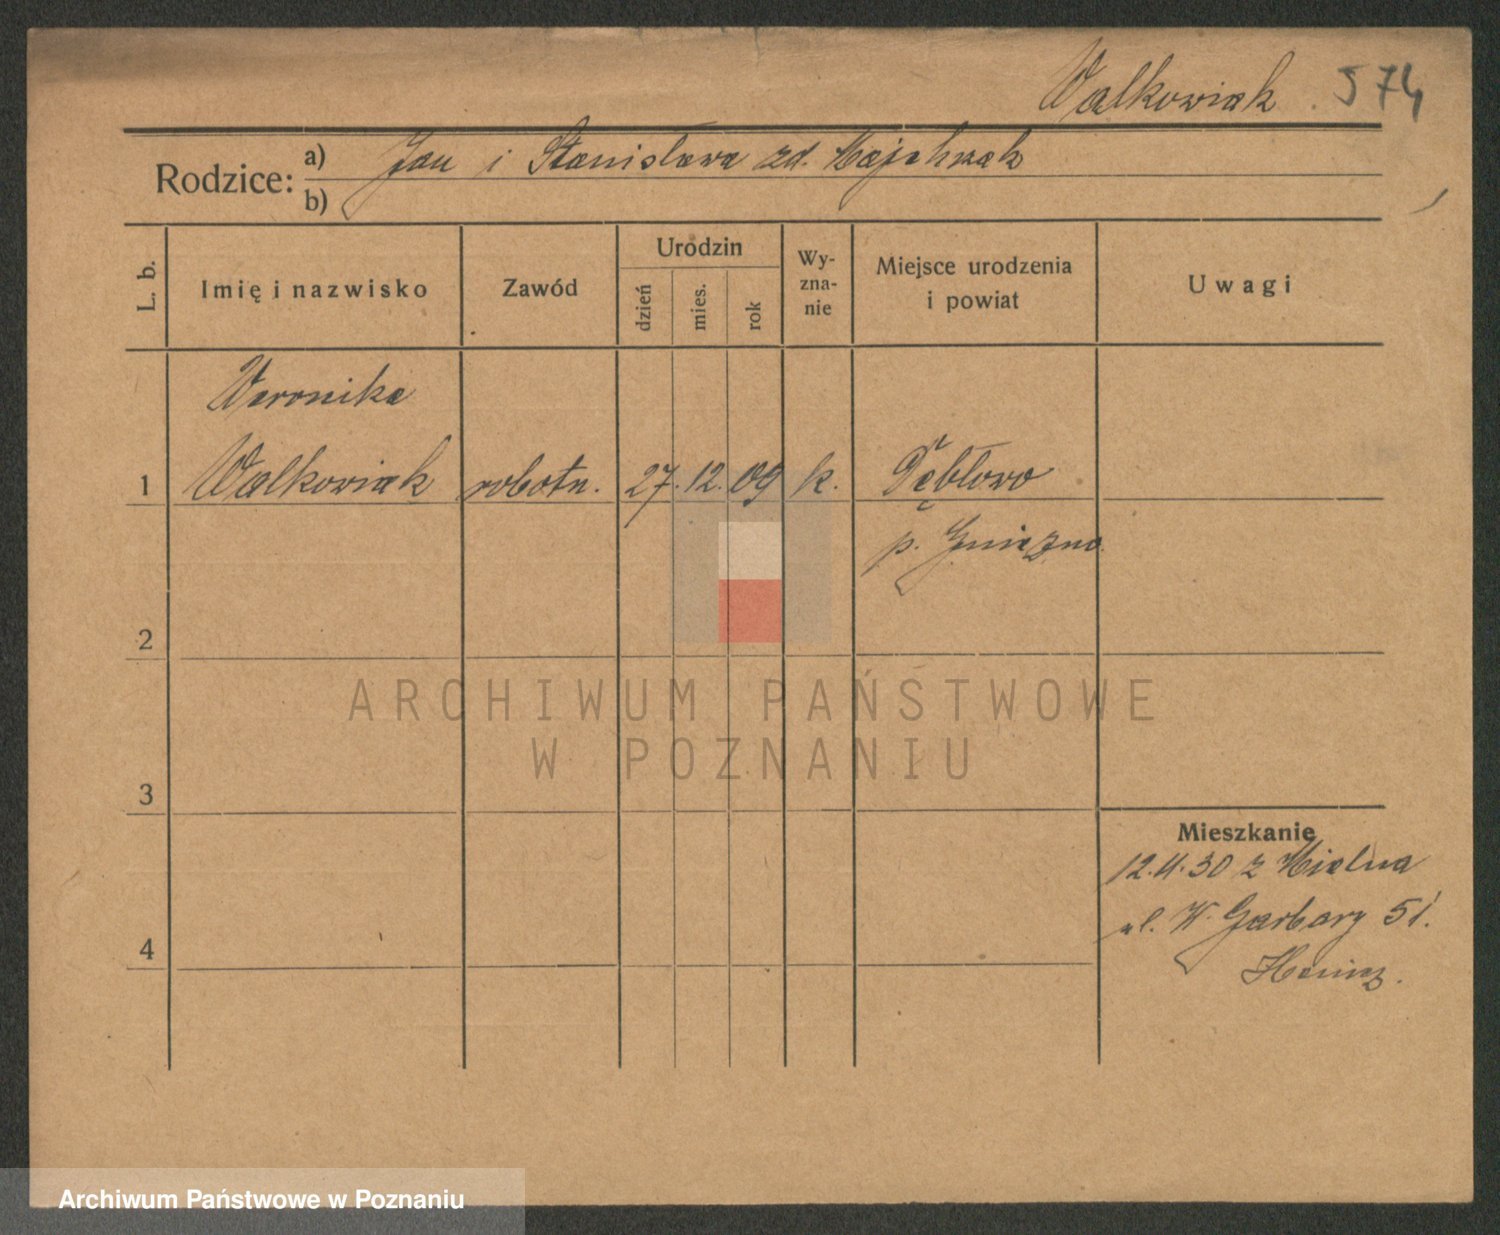 Walkowiak 574
Rodzice:
a) Jan i Stanisława zd. Majchrzak
b)
L. b.
Imię i nazwisko
Zawód
Urodzin
dzień
mies.
rok
Wy-
zna-
nie
Miejsce urodzenia
i powiat
Uwagi
Weronika
1 Walkowiak robotn. 27. 12. 09 k. Dębłowo
p. Gniezno
2
ARCHIWUM PAŃSTWOWE
W POZNANIU
3
Mieszkanie
12.4.30 z Mielna
ul. W. Garbary 51.
4
Archiwum Państwowe w Poznaniu